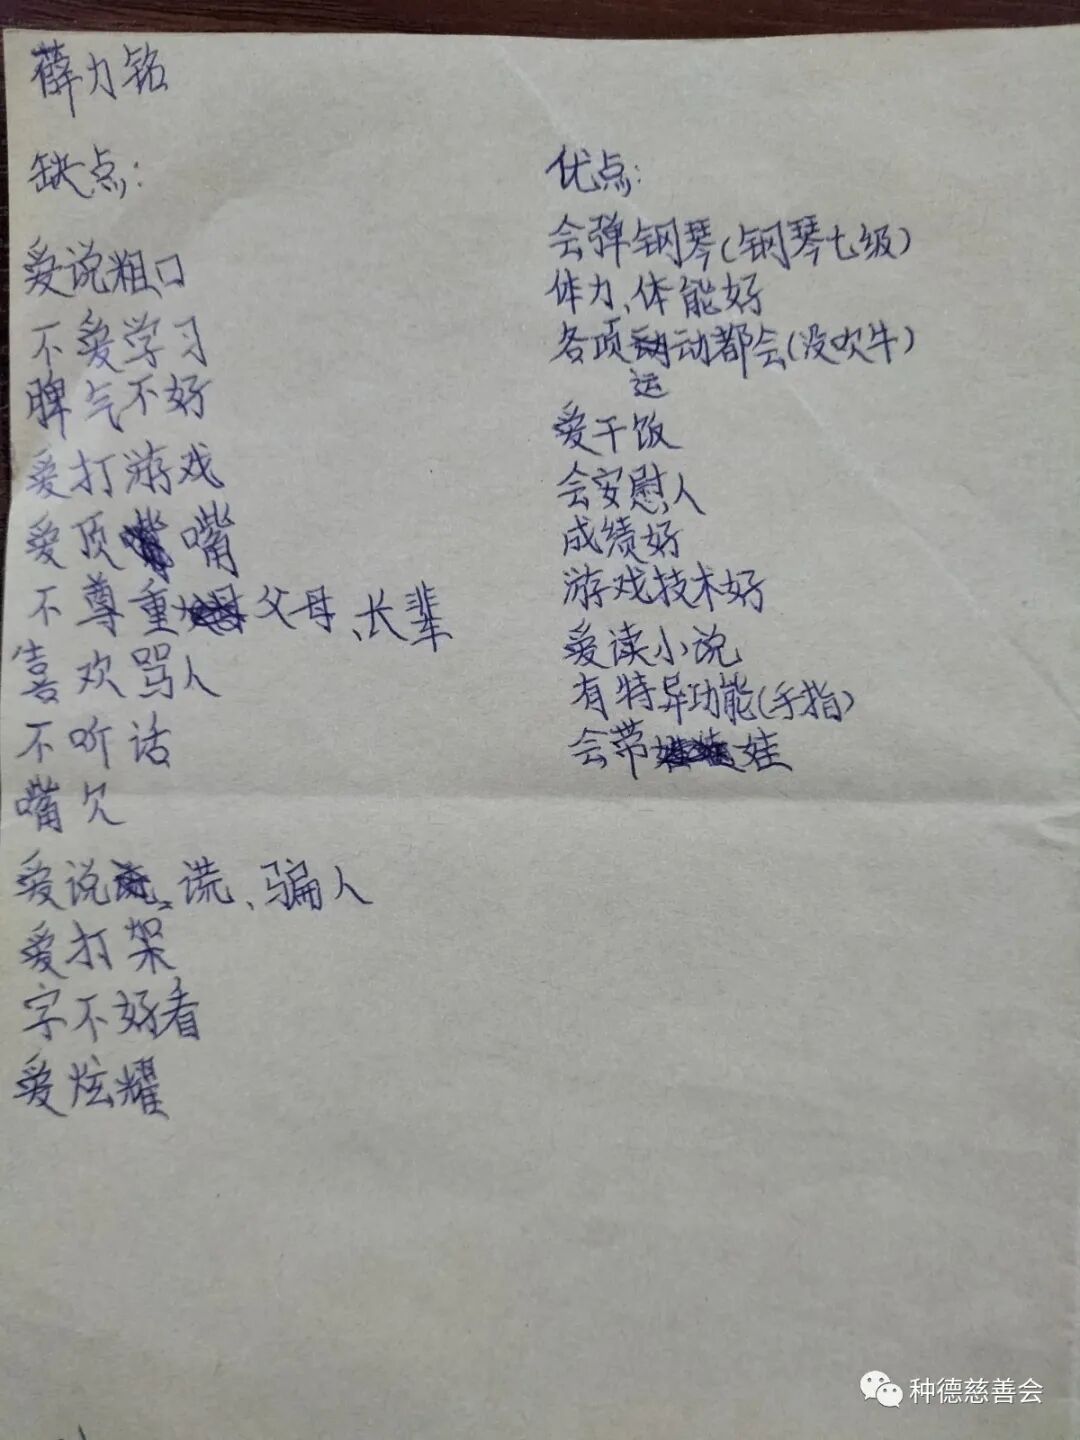 薛力铭
缺点：
爱说粗口
不爱学习
脾气不好
爱打游戏
爱顶嘴
不尊重父母、长辈
喜欢骂人
不听话
嘴欠
爱说谎、骗人
爱打架
字不好看
爱炫耀
优点：
会弹钢琴(钢琴七级)
体力、体能好
各项运动都会(没吹牛)
爱干饭
会安慰人
成绩好
游戏技术好
爱读小说
有特异功能(手指)
会带娃
种德慈善会